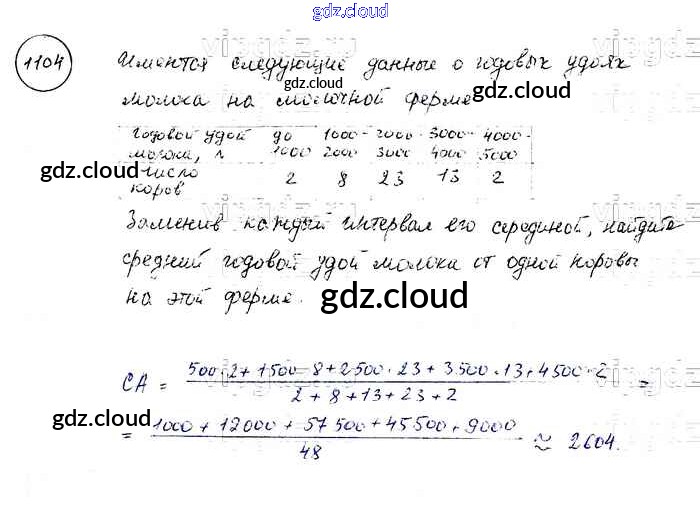 gdz.cloud
1104
Имеются следующие данные о годовых удоях
молока на молочной ферме
gdz.cloud
gdz.cloud
Годовой удой до 1000- 2000- 3000- 4000-
молока, л 1000 2000 3000 4000 5000
gdz.cloud
gdz.cloud
число
коров 2 8 23 13 2
Заменив каждый интервал его серединой, найдите
средний годовой удой молока от одной коровы
на этой ферме.
gdz.cloud
СА = 500·2+1500·8+2500·23+3500·13+4500·2 / 2+8+13+23+2 =
gdz.cloud
gdz.cloud
= 1000+12000+57500+45500+9000 / 48 ≈ 2604.